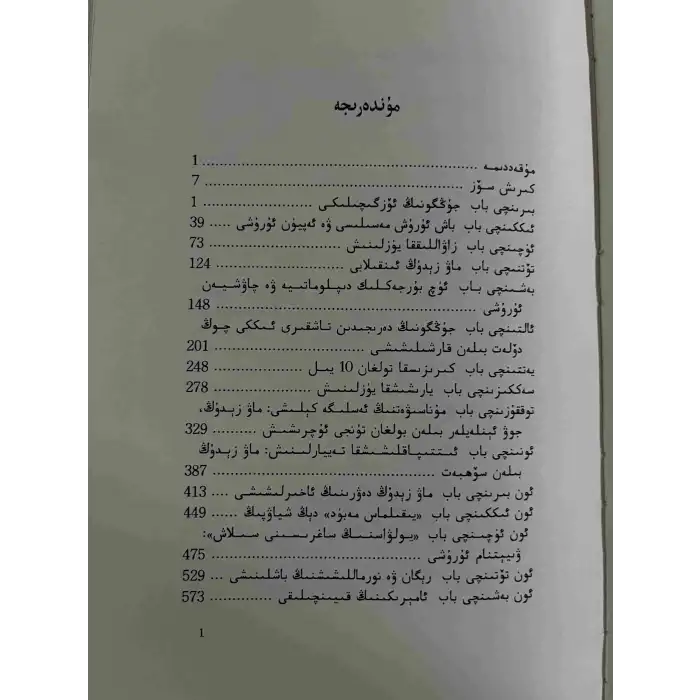 مۇندەرىجە
مۇقەددىمە ........................................................ 1
كىرىش سۆز ........................................................ 7
بىرىنچى باب جۇڭگونىڭ ئۆزگىچىلىكى ................................ 1
ئىككىنچى باب باش ئۇرۇش مەسىلىسى ۋە ئەپيۇن ئۇرۇشى ..... 39
ئۈچىنچى باب زاۋاللىققا يۈزلىنىش .............................. 73
تۆتىنچى باب ماۋ زېدۇڭ ئىنقىلابى .............................. 124
بەشىنچى باب ئۈچ بۇرجەكلىك دىپلوماتىيە ۋە چاۋشيەن
ئۇرۇشى ........................................................ 148
ئالتىنچى باب جۇڭگونىڭ دەرىجىدىن تاشقىرى ئىككى چوڭ
دۆلەت بىلەن قارشىلىشىشى .............................. 201
يەتتىنچى باب كىرىزىسقا تولغان 10 يىل ........................ 248
سەككىزىنچى باب يارىشىشقا يۈزلىنىش ......................... 278
توققۇزىنچى باب مۇناسىۋەتنىڭ ئەسلىگە كېلىشى: ماۋ زېدۇڭ،
جوۋ ئېنلەيلەر بىلەن بولغان تۇنجى ئۇچرىشىش .......... 329
ئونىنچى باب ئىتتىپاقلىشىشقا تەييارلىنىش: ماۋ زېدۇڭ
بىلەن سۆھبەت ................................................ 387
ئون بىرىنچى باب ماۋ زېدۇڭ دەۋرىنىڭ ئاخىرلىشىشى ............ 413
ئون ئىككىنچى باب «يىقىلماس مەبۇد» دېڭ شياۋپىڭ ............ 449
ئون ئۈچىنچى باب «يولۋاسنىڭ ساغرىسىنى سىلاش»:
ۋىيېتنام ئۇرۇشى ............................................ 475
ئون تۆتىنچى باب رېگان ۋە نورماللىشىشنىڭ باشلىنىشى ... 529
ئون بەشىنچى باب ئامېرىكىنىڭ قىيىنچىلىقى .................. 573
1